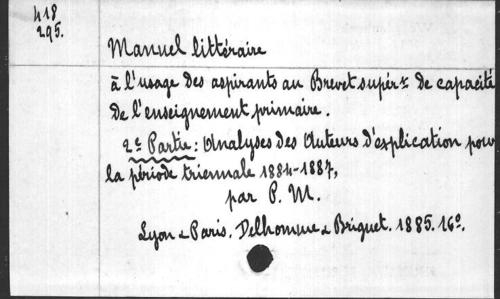 418
295.
Manuel littéraire
à l'usage des aspirants au Brevet supér.r de capacité
de l'enseignement primaire.
2e Partie: Analyses des Auteurs d'explication pour
la période triennale 1884-1887,
par P. M.
Lyon & Paris. Delhomme & Briguet. 1885. 16o.